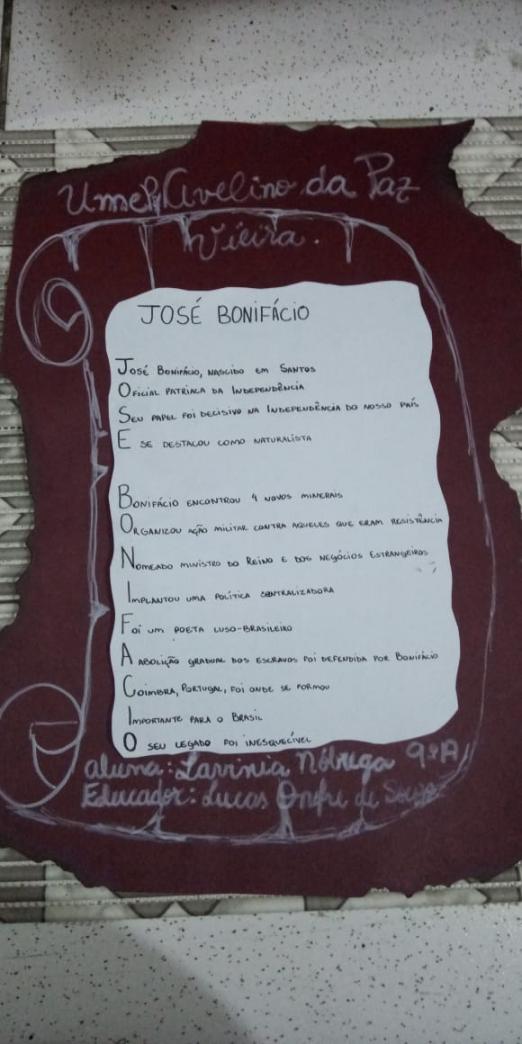 Umef Avelino da Paz
Vieira.
JOSÉ BONIFÁCIO
JOSÉ BONIFÁCIO, NASCIDO EM SANTOS
OFICIAL PATRIACA DA INDEPENDÊNCIA
SEU PAPEL FOI DECISIVO NA INDEPENDÊNCIA DO NOSSO PAÍS
E SE DESTACOU COMO NATURALISTA
BONIFÁCIO ENCONTROU 4 NOVOS MINERAIS
ORGANIZOU AÇÃO MILITAR CONTRA AQUELES QUE ERAM RESISTÊNCIA
NOMEADO MINISTRO DO REINO E DOS NEGÓCIOS ESTRANGEIROS
IMPLANTOU UMA POLÍTICA CENTRALIZADORA
FOI UM POETA LUSO-BRASILEIRO
A ABOLIÇÃO GRADUAL DOS ESCRAVOS FOI DEFENDIDA POR BONIFÁCIO
COIMBRA, PORTUGAL, FOI ONDE SE FORMOU
IMPORTANTE PARA O BRASIL
O SEU LEGADO FOI INESQUECÍVEL
aluna: Lavinia Nóbrega 9ºA
Educador: Lucas Onofre de Souza